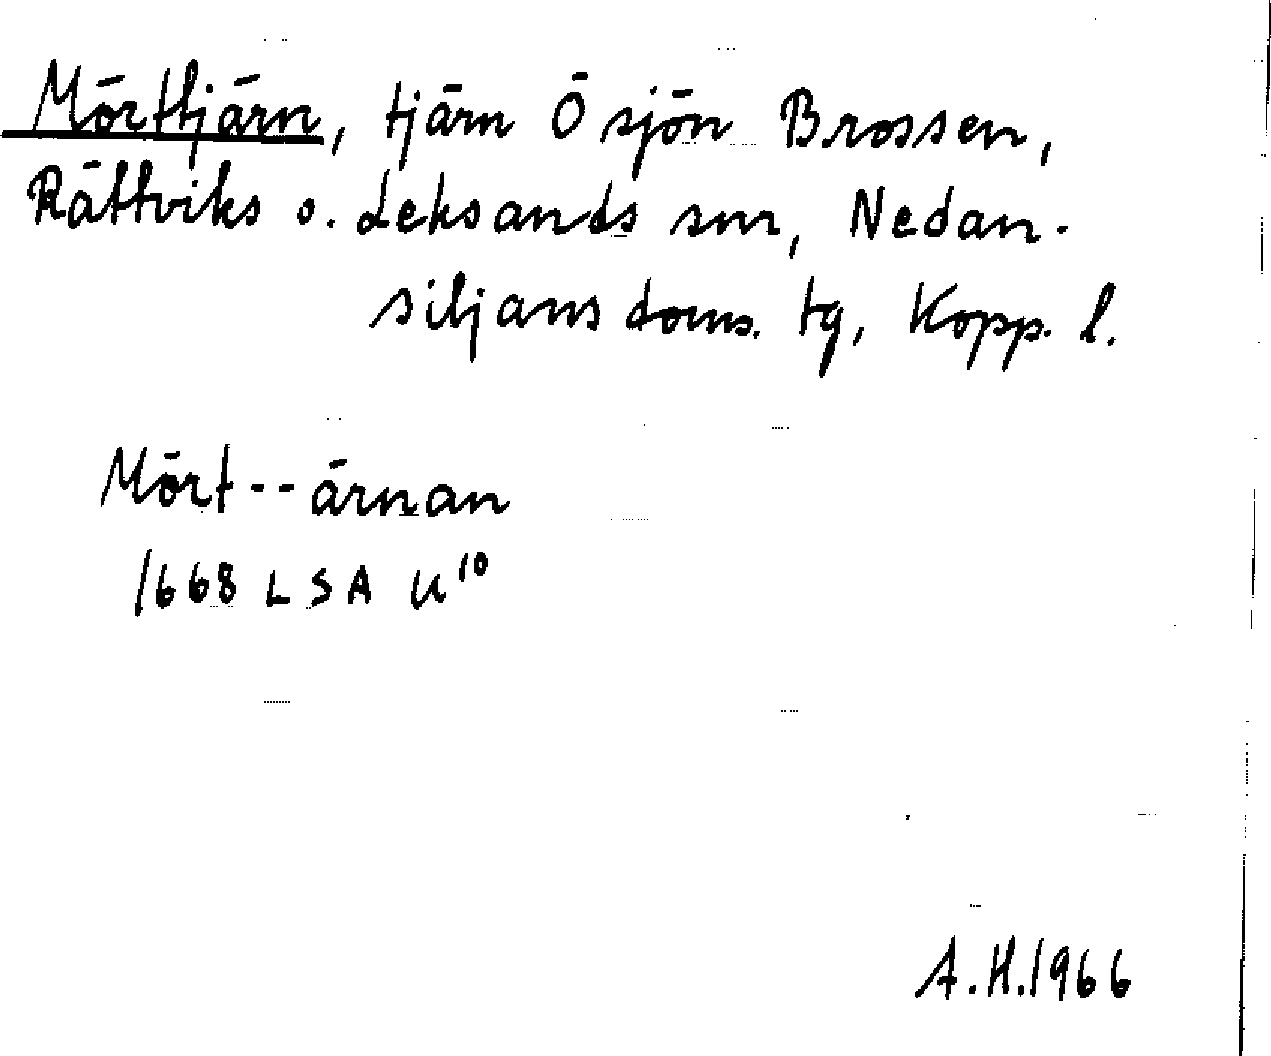 Mörttjärn, tjärn Ö sjön Brossen,
Rättviks o. Leksands snr, Nedan-
siljans doms. tg, Kopp. l.
Mört--ärnan
1668 LSA U¹⁰
A.H.1966